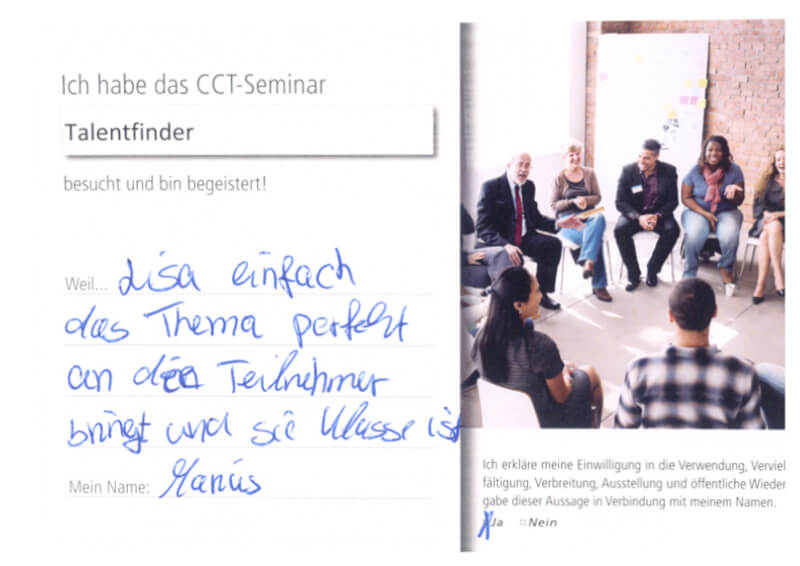 Ich habe das CCT-Seminar
Talentfinder
besucht und bin begeistert!
Weil... Lisa einfach
das Thema perfekt
an die Teilnehmer
bringt und sie klasse ist
Mein Name: Marius
Ich erkläre meine Einwilligung in die Verwendung, Verviel
fältigung, Verbreitung, Ausstellung und öffentliche Wieder
gabe dieser Aussage in Verbindung mit meinem Namen.
Ja Nein